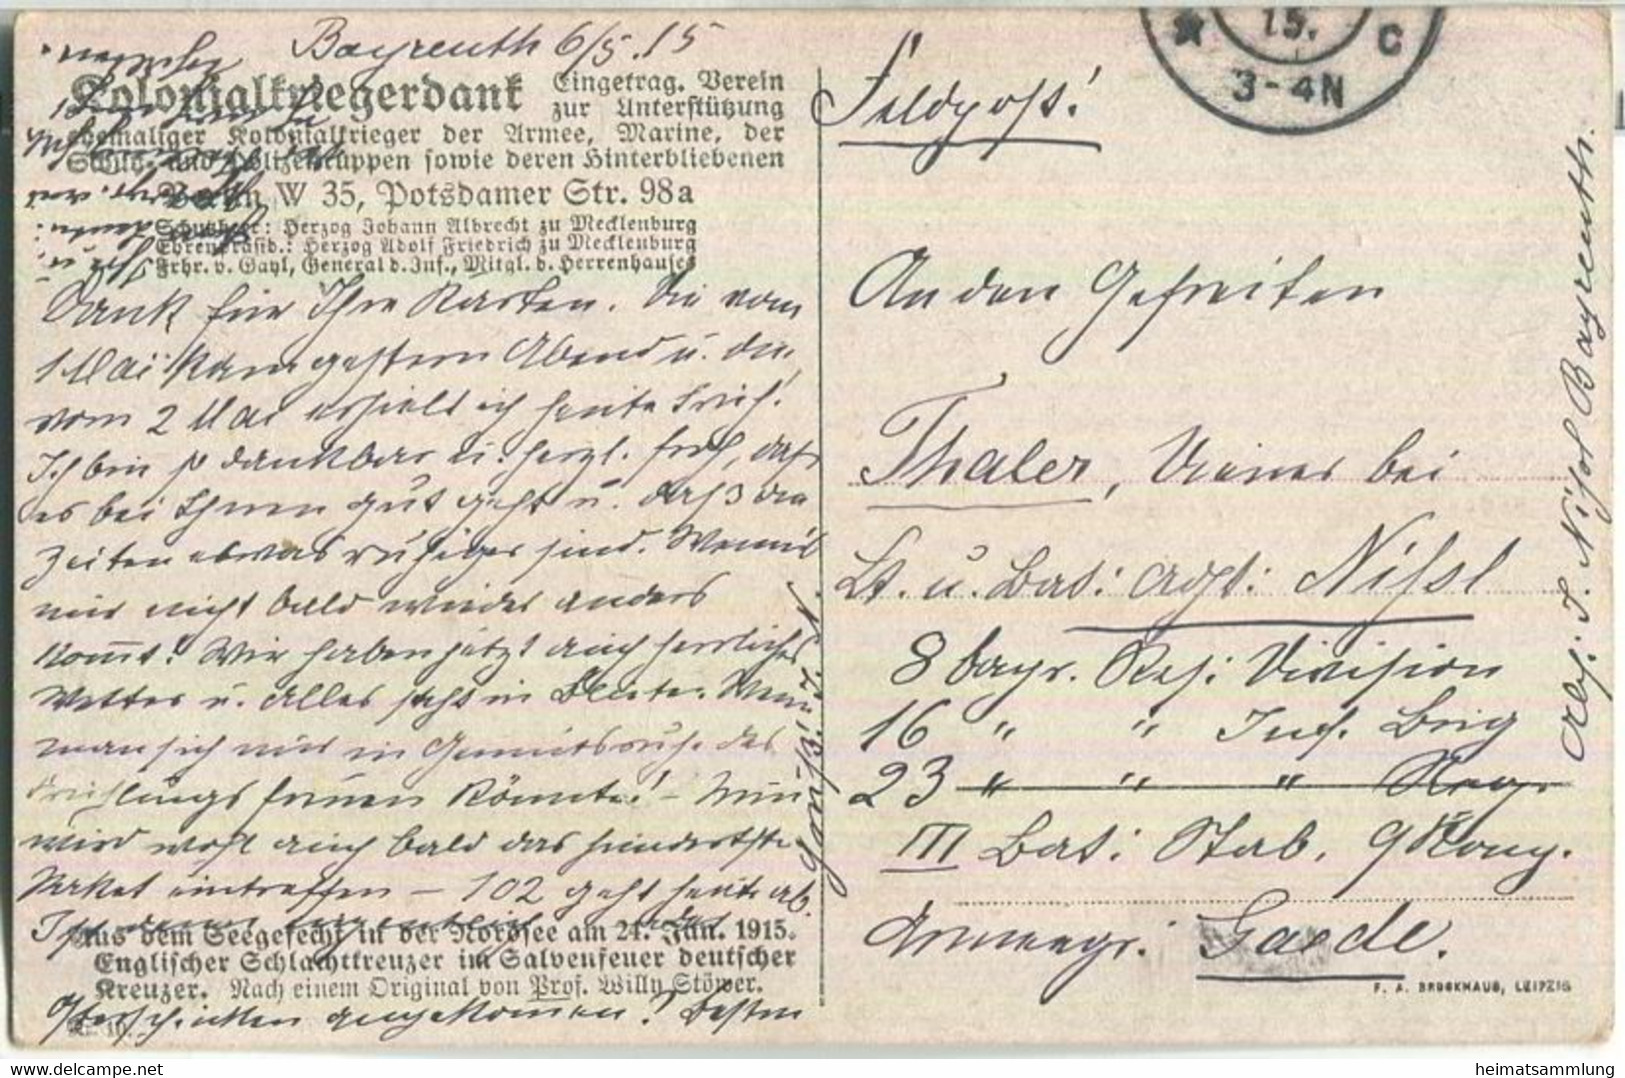 Bayreuth 6/5.15
Kolonialkriegerdank Eingetrag. Verein
zur Unterstützung
ehemaliger Kolonialkrieger der Armee, Marine, der
Schutz- und Polizeitruppen sowie deren Hinterbliebenen
Berlin W 35, Potsdamer Str. 98a
Schutzherr: Herzog Johann Albrecht zu Mecklenburg
Ehrenpräsid.: Herzog Adolf Friedrich zu Mecklenburg
Frhr. v. Gayl, General d. Inf., Mitgl. d. Herrenhauses
Dank für Ihre Karten. Die vom
1 Mai kam gestern Abend u. die
vom 2 Mai erhielt ich heute früh.
Ich bin so dankbar u. herzl. froh, daß
es bei Ihnen gut geht u. daß die
Zeiten etwas ruhiger sind. Wenn's
nur nicht bald wieder anders
kommt! Wir haben jetzt auch herrliches
Wetter u. alles steht in Blüte. Wenn
man sich nur in Gemütsruhe des
Frühlings freuen könnte! - Nun
wird wohl auch bald das hundertste
Paket eintreffen - 102 geht heute ab.
Ist denn eigentlich das
Aus dem Seegefecht in der Nordsee am 24. Jan. 1915.
Englischer Schlachtkreuzer im Salvenfeuer deutscher
Kreuzer. Nach einem Original von Prof. Willy Stöwer.
Osterschinken angekommen? Besten
15.
* C
3-4N
Feldpost!
An den Gefreiten
Thaler, Diener bei
Lt. u. Bat: Adjt: Nißl
8 bayr. Res: Division
16 " " Inf. Brig
23 " " " Reg.
III Bat: Stab. 9 Komp.
Armeegr: Gaede.
F. A. BROCKHAUS, LEIPZIG
Abs: J. Nißl Bayreuth.